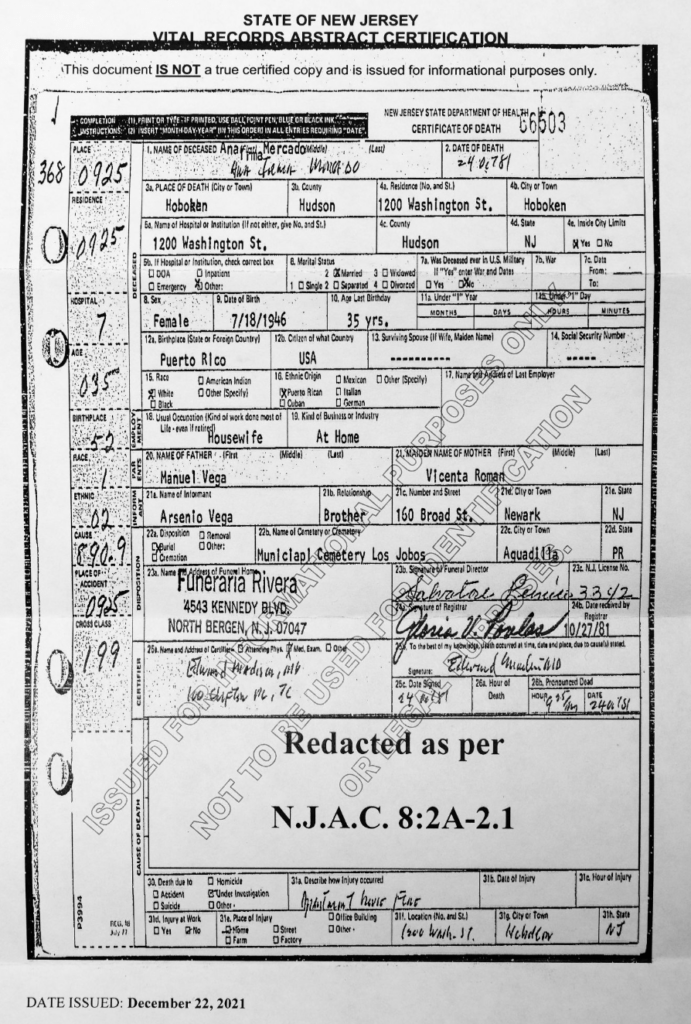 STATE OF NEW JERSEY
VITAL RECORDS ABSTRACT CERTIFICATION
This document IS NOT a true certified copy and is issued for informational purposes only.
COMPLETION (1) PRINT OR TYPE - IF PRINTED, USE BALL POINT PEN, BLUE OR BLACK INK
INSTRUCTIONS: (2) INSERT "MONTH-DAY-YEAR" (IN THIS ORDER) IN ALL ENTRIES REQUIRING "DATE".
NEW JERSEY STATE DEPARTMENT OF HEALTH
CERTIFICATE OF DEATH
66503
368
PLACE
0925
1. NAME OF DECEASED (Middle) (Last)
Ana Irma Mercado
2. DATE OF DEATH
24 Oc 781
3a. PLACE OF DEATH (City or Town) 3b. County 4a. Residence (No. and St.) 4b. City or Town
Hoboken Hudson 1200 Washington St. Hoboken
RESIDENCE
0925
5a. Name of Hospital or Institution (If not either, give No. and St.) 4c. County 4d. State 4e. Inside City Limits
1200 Washington St. Hudson NJ Yes No
DECEASED
5b. If Hospital or Institution, check correct box 6. Marital Status 7a. Was Deceased ever in U.S. Military 7b. War 7c. Date
DOA Inpatient 2 Married 3 Widowed If "Yes" enter War and Dates From:
Emergency Other: 1 Single 2 Separated 4 Divorced Yes No To:
HOSPITAL
7
8. Sex 9. Date of Birth 10. Age Last Birthday 11a. Under "1" Year 11b. Under "1" Day
MONTHS DAYS HOURS MINUTES
Female 7/18/1946 35 yrs.
AGE
035
12a. Birthplace (State or Foreign Country) 12b. Citizen of what Country 13. Surviving Spouse (If Wife, Maiden Name) 14. Social Security Number
Puerto Rico USA ----------- -----
15. Race American Indian 16. Ethnic Origin Mexican Other (Specify) 17. Name and Address of Last Employer
White Other (Specify) Puerto Rican Italian
Black Cuban German
BIRTHPLACE
52
EMPLOYMENT
18. Usual Occupation (Kind of work done most of Life - even if retired) 19. Kind of Business or Industry
Housewife At Home
RACE
1
PARENTS
20. NAME OF FATHER (First) (Middle) (Last) 21. MAIDEN NAME OF MOTHER (First) (Middle) (Last)
Manuel Vega Vicenta Roman
ETHNIC
02
INFORMANT
21a. Name of Informant 21b. Relationship 21c. Number and Street 21d. City or Town 21e. State
Arsenio Vega Brother 160 Broad St. Newark NJ
CAUSE
890.9
DISPOSITION
22a. Disposition Removal 22b. Name of Cemetery or Crematory 22c. City or Town 22d. State
Burial Other:
Cremation Municiapl Cemetery Los Jobos Aquadilla PR
PLACE OF ACCIDENT
0925
23a. Name and Address of Funeral Home 23b. Signature of Funeral Director 23c. N.J. License No.
Funeraria Rivera
4543 KENNEDY BLVD.
NORTH BERGEN, N.J. 07047
Salvatore 3342
24a. Signature of Registrar 24b. Date received by Registrar
Gloria V. 10/27/81
CROSS CLASS
199
CERTIFIER
25a. Name and Address of Certifier Attending Phys. Med. Exam. Other
25b. To the best of my knowledge, death occurred at time, date and place, due to cause(s) stated.
Edward MD
Signature: Edward MD
25c. Date Signed 26a. Hour of Death 26b. Pronounced Dead
HOUR DATE
24 Oc 81 9 35 AM 24 Oc 781
CAUSE OF DEATH
Redacted as per
N.J.A.C. 8:2A-2.1
ISSUED FOR INFORMATIONAL PURPOSES ONLY
NOT TO BE USED FOR IDENTIFICATION
OR LEGAL PURPOSES.
30. Death due to Homicide 31a. Describe how Injury occurred 31b. Date of Injury 31c. Hour of Injury
Accident Under Investigation
Suicide Other
31d. Injury at Work 31e. Place of Injury Office Building 31f. Location (No. and St.) 31g. City or Town 31h. State
Yes No Home Street Other
Farm Factory
1200 Wash. St. Hoboken NJ
P3994
DATE ISSUED: December 22, 2021